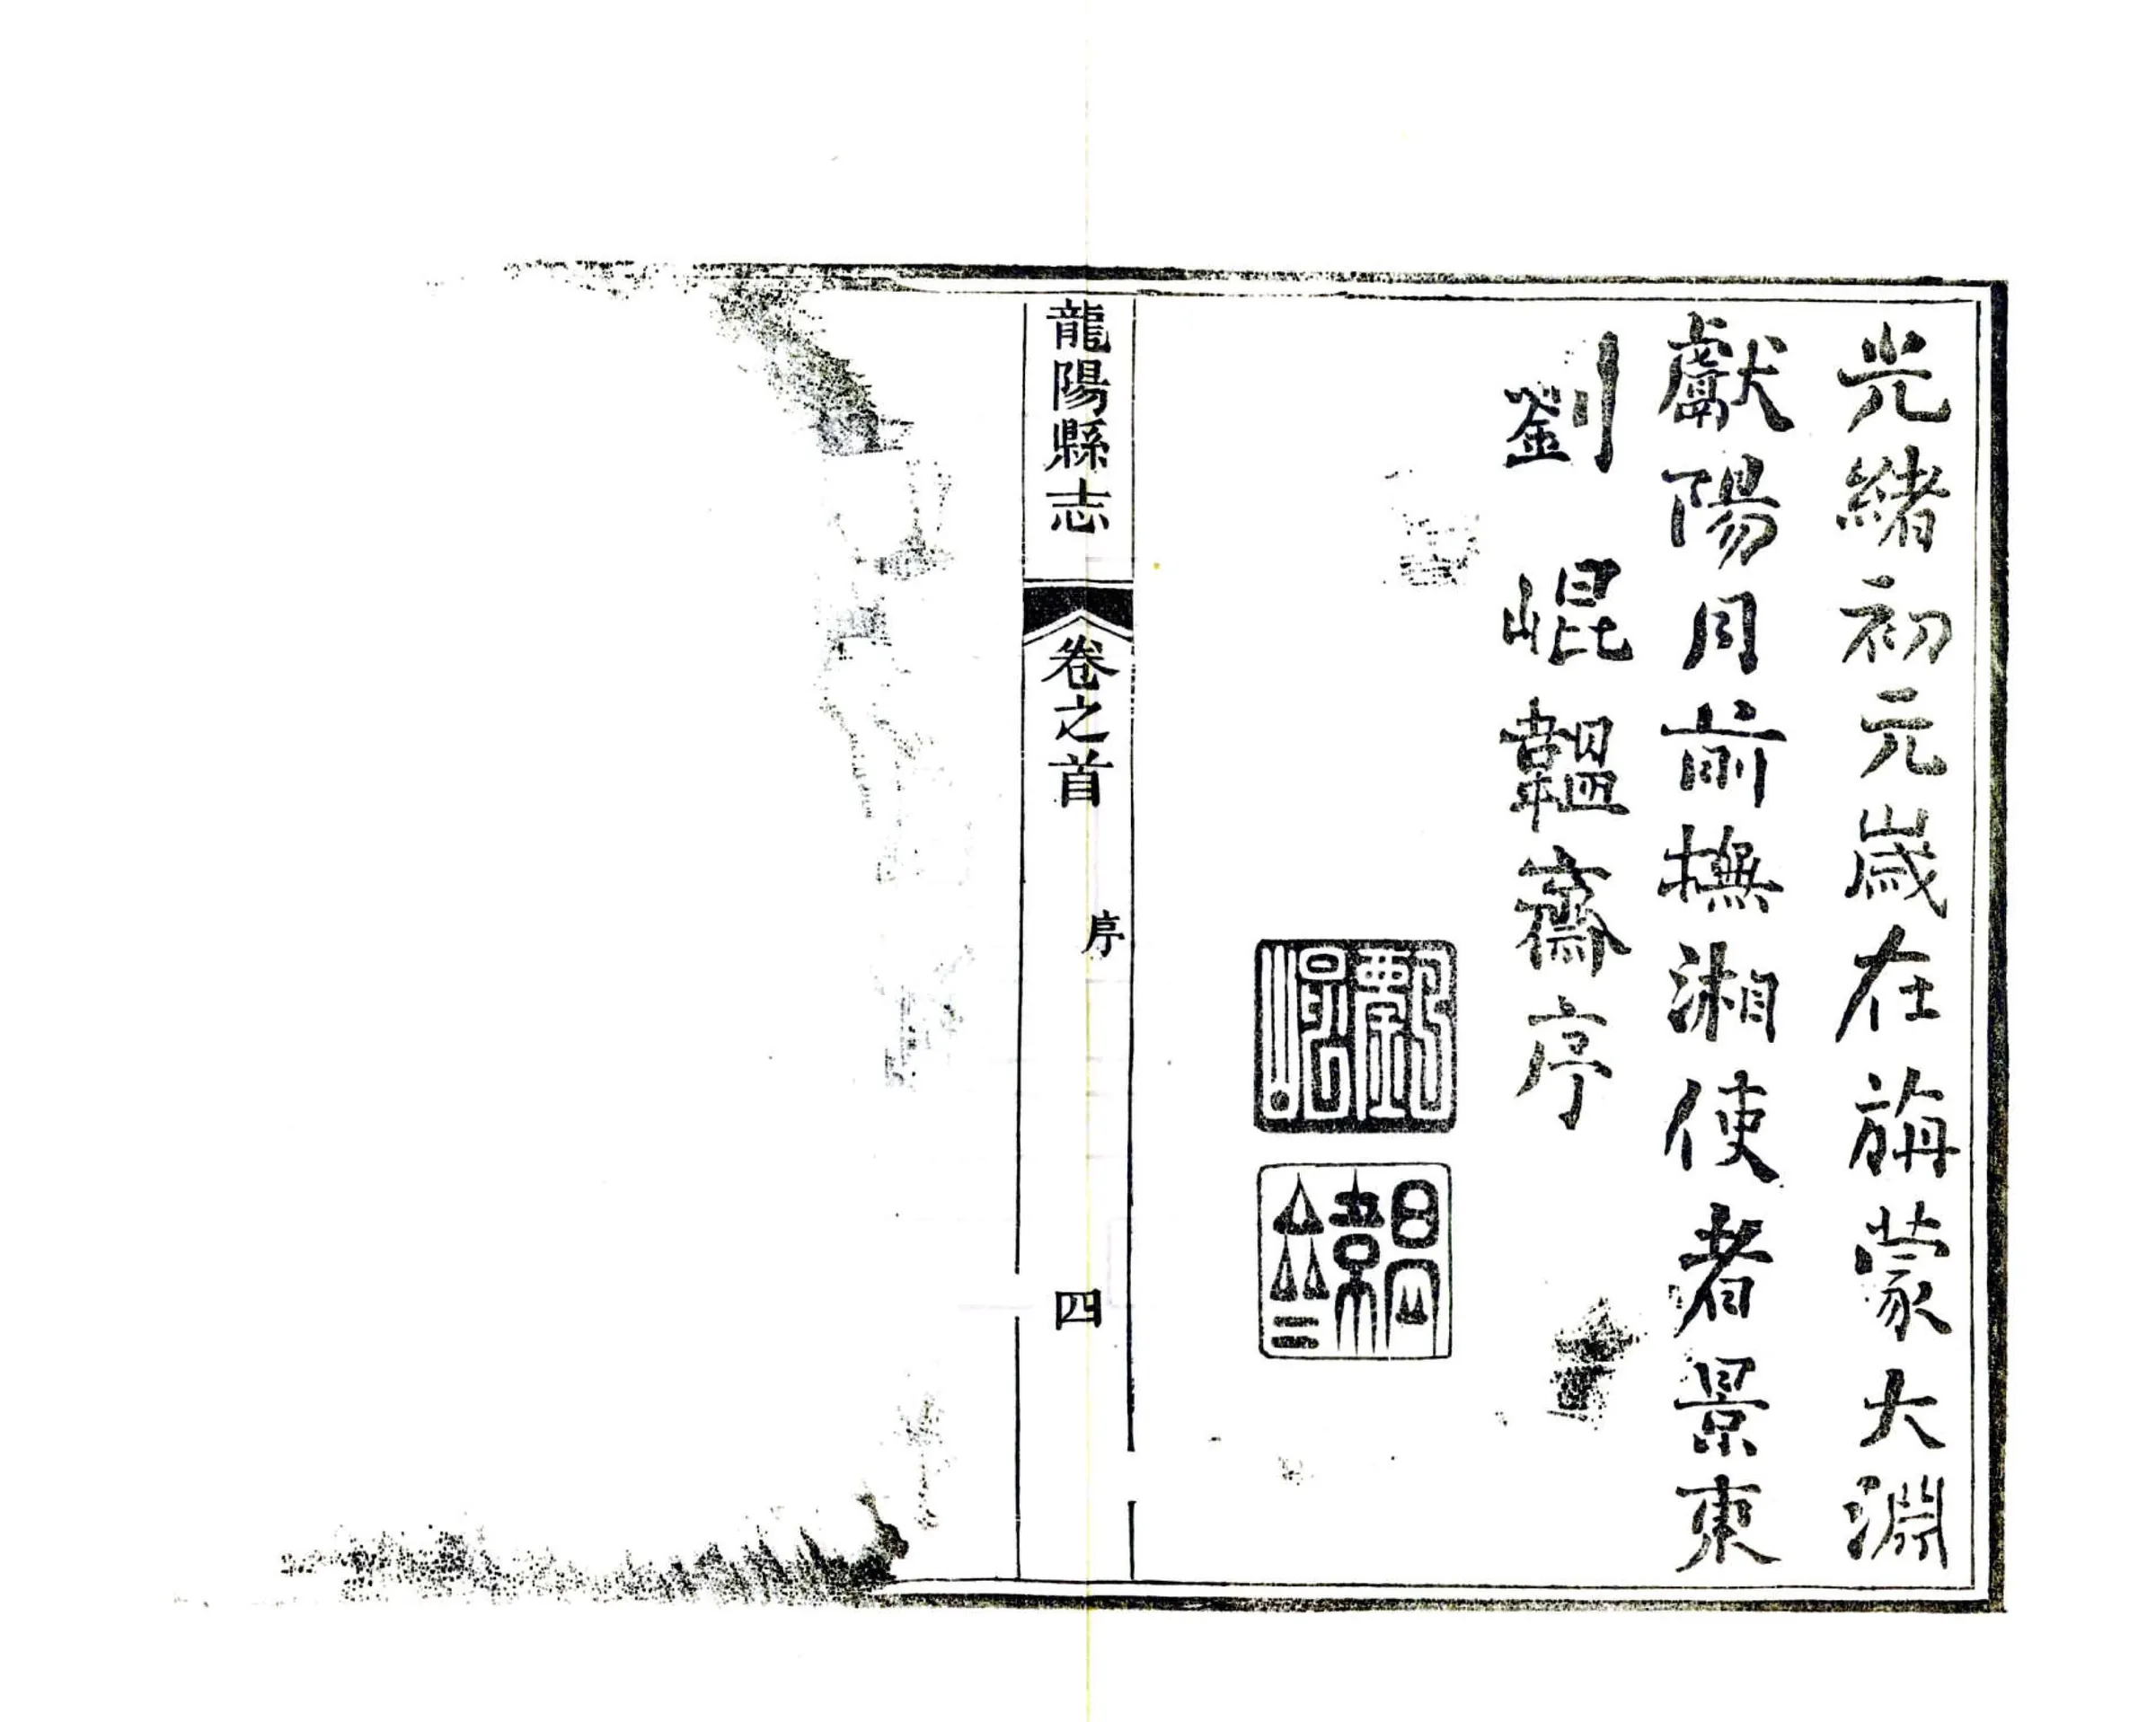 光緒初元歲在旃蒙大淵
獻陽月前撫湘使者景東
劉崐韞齋序
劉崐
韞齋
龍陽縣志
卷之首
序
四